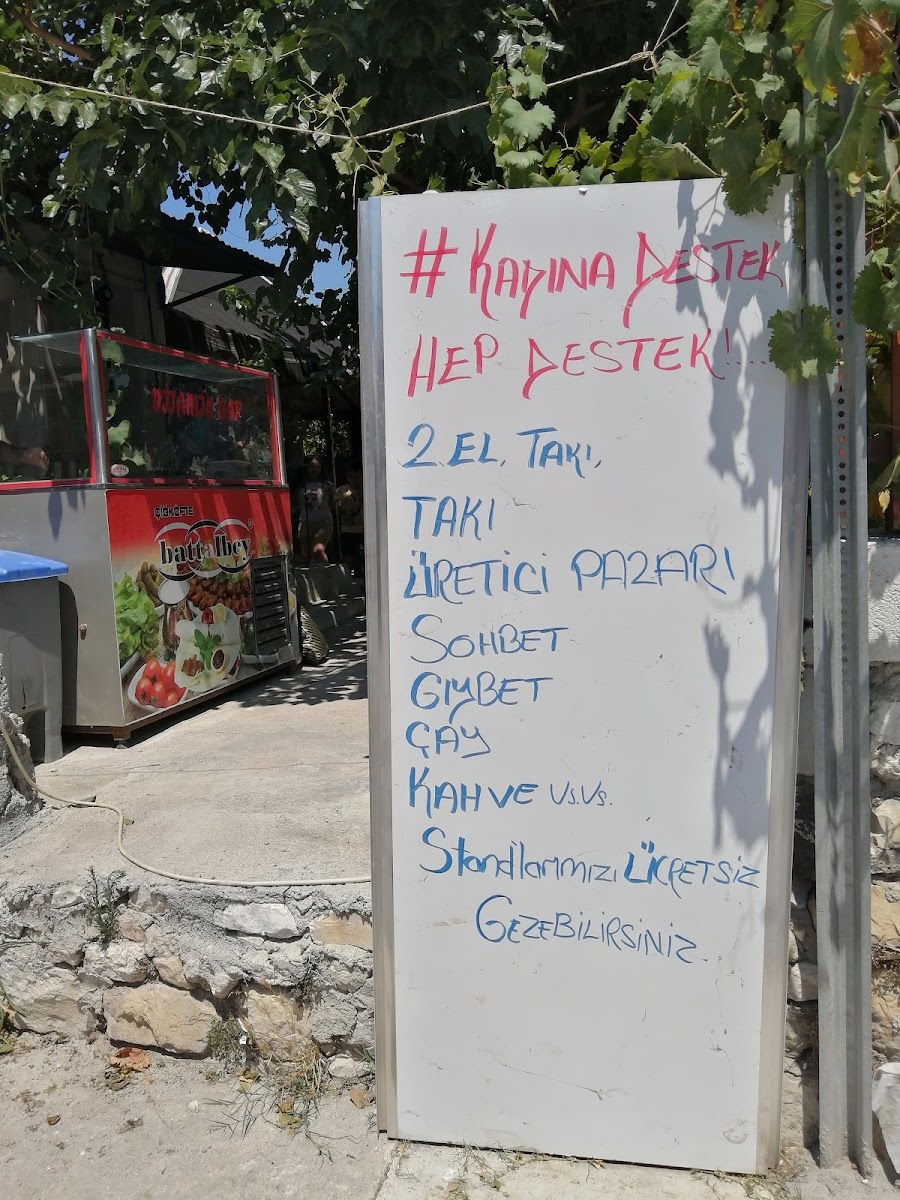 #KAYINA DESTEK
HEP DESTEK!....
2. EL. TAKI.
TAKI
ÜRETİCİ PAZARI
SOHBET
GIYBET
ÇAY
KAHVE Vs.Vs.
Standlarımızı ÜCRETSİZ
GEZEBİLİRSİNİZ.
ÇİĞKÖFTE
battalbey